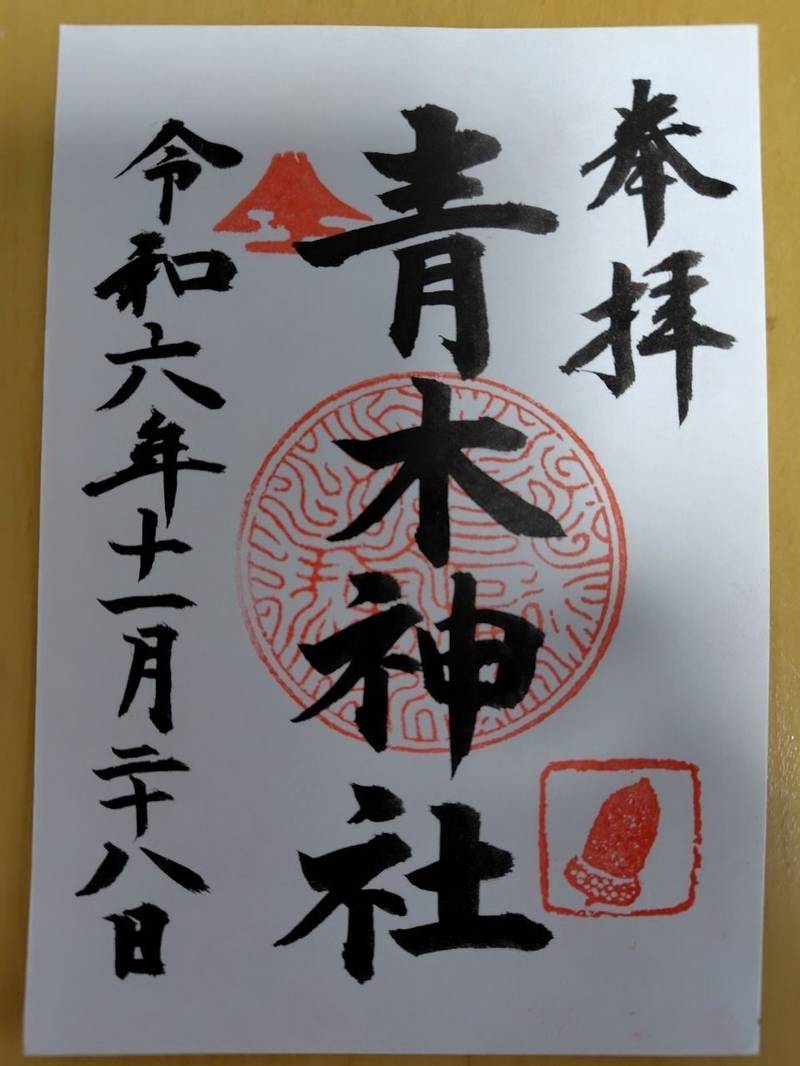 奉拝
青木神社
令和六年十一月二十八日